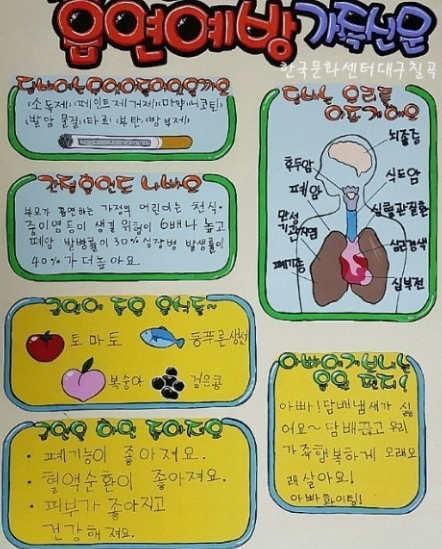 흡연예방 가족신문
한국문화센터대구칠곡
담배에는무엇이들어있을까요
소독제, 페인트제거제, 마약, 니코틴,
발암물질, 타르, 부탄, 방부제,
간접흡연도 나빠요
부모가 흡연하는 가정의 어린이는 천식,
중이염등이 생길 위험이 6배나 높고
폐암 발병률이 30% 심장병 발생률이
40%가 더높아요.
금연에 좋은 음식들~
토마토
등푸른생선
복숭아
검은콩
금연을 하면 좋아져요
· 폐기능이 좋아져요.
· 혈액순환이 좋아져요.
· 피부가 좋아지고
건강해져요.
담배는 우리를
아프게해요
뇌졸중
후두암
식도암
폐암
심혈관질환
만성
기관지염
심근경색
폐기종
심부전
아빠에게보내는
응원 편지!
아빠! 담배냄새가 싫
어요~ 담배끊고 우리
가족행복하게 오래오
래 살아요!
아빠 화이팅!